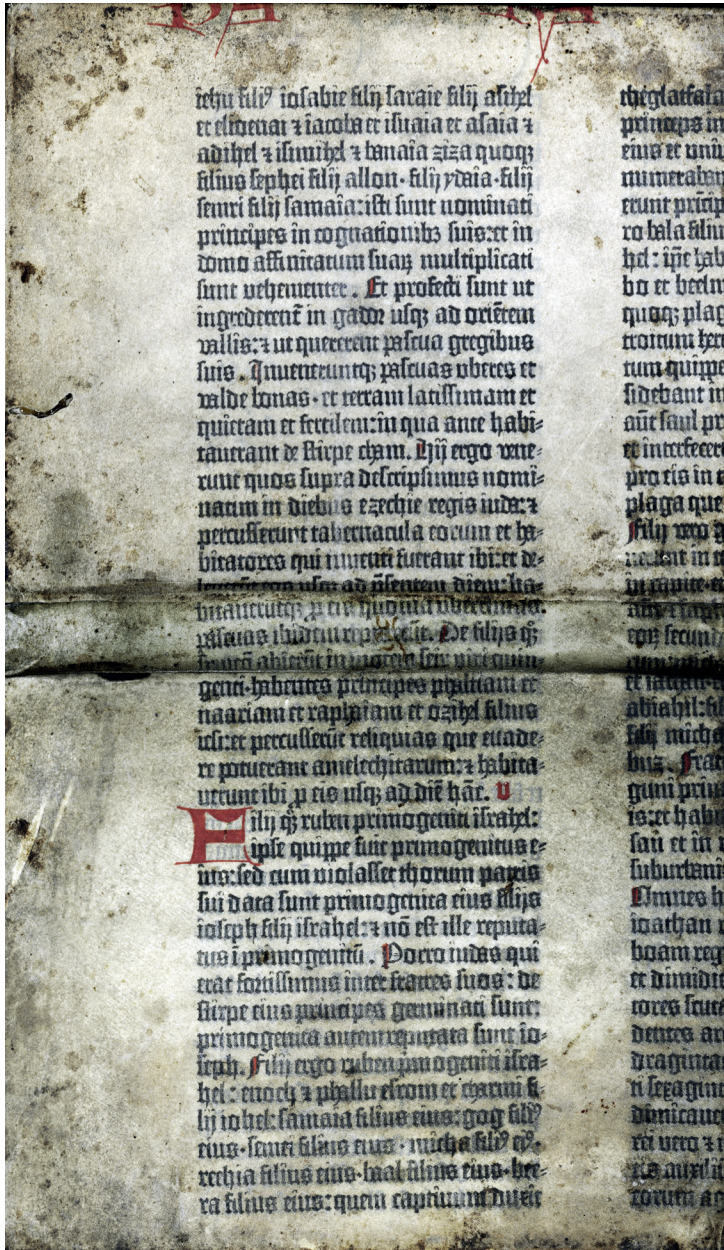 PA
iehu filiꝰ iosabie filij saraie filij asihel
et elioenai ⁊ iacoba et isuaia et asaia ⁊
adihel ⁊ ismihel ⁊ banaia ziza quoqꝫ
filius sephei filij allon·filij ydaia·filij
semri filij samaia:isti sunt nominati
principes in cognationibꝫ suis:et in
domo affinitatum suaꝝ multiplicati
sunt vehementer. Et profecti sunt ut
ingrederent̄ in gador usqꝫ ad oriētem
vallis:⁊ ut quererent pascua gregibus
suis. Inueneruntqꝫ pascuas uberes et
valde bonas·et terram latissimam et
quietam et fertilem:in qua ante habi-
tauerant de stirpe cham. Hij ergo vene-
runt quos supra descripsimus nomi-
natim in diebus ezechie regis iuda:⁊
percusserunt tabernacula eorum et ha-
bitatores qui inuenti fuerant ibi:et de-
usqꝫ ad p̄sentem diem:ha-
bitaueruntqꝫ ꝓ eis quoniā uberrimas
pascuas ibidem reppererūt. De filijs qꝫ
abierūt in montem seir viri quin-
genti·habentes principes phaltiam et
naariam et raphaiam et ozihel filius
iesi:et percusserūt reliquias que euade-
re potuerant amelechitarum:⁊ habita-
uerunt ibi ꝓ eis usqꝫ ad diē hāc. V
Filij qꝫ ruben primogeniti israhel:
ipse quippe fuit primogenitus e-
ius:sed cum violasset thorum patris
sui data sunt primogenita eius filijs
ioseph filij israhel:⁊ nō est ille reputa-
tus ī primogenitū. Porro iudas qui
erat fortissimus inter fratres suos: de
stirpe eius principes germinati sunt:
primogenita autem reputata sunt io-
seph. Filij ergo ruben p̄mogeniti isra-
hel: enoch ⁊ phallu esrom et charmi fi-
lij iohel:samaia filius eius:gog filiꝰ
eius·semei filius eius·micha filiꝰ eiꝰ·
rechia filius eius·baal filius eius·bee-
ra filius eius:quem captiuum duxit
theglatfala
princeps in
eius et uniu
numeraban
erunt pricip
ro bala filiu
hel: ip̄e hab
bo et beelm
quoqꝫ plag
troitum her
tum quippe
sidebant in
aūt saul pr
et interfecer
pro eis in t
plaga que
Filij vero g
in capite
eoꝝ secun
abiahil:fil
filij micha
buz. Frat
guni prin
is:et habi
san et in v
suburbani
Omnes h
ioathan r
boam reg
et dimidi
tores scut
dentes ar
draginta
ti sexagin
dimicaue
rei vero ⁊
auxili
torum a